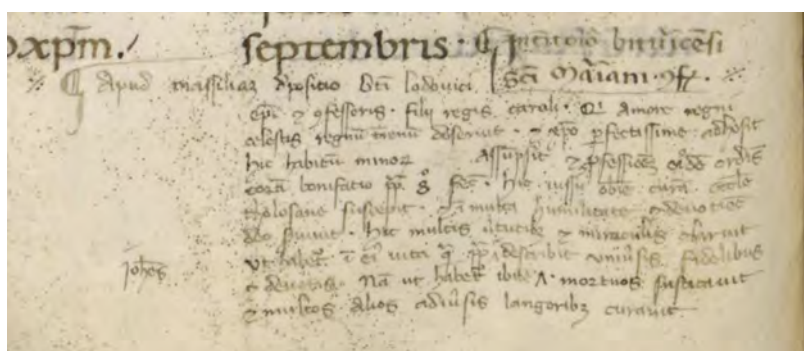 oxp̄m ./ septembris · ¶ In t̄itorio bitur̄icensi
¶ Apud massiliaꝫ depositio b̄ti lodovici sc̄i Mar̄iani · ꝯf̄ ·
ep̄i ⁊ ꝯfessoris · filij regis caroli · Qi amore regni
celestis regnū t̄renū deseruit · ⁊ xp̄o p̄fectissime adhesit
hic habitū minoꝝ assūpsit ⁊ ꝓfessionē eiꝰdē ordīs
corā bonifatio pp̄ 8º fec̄ · hic iussu obīe curā eccl̄e
tholosane suscepit · ⁊ ī multa humilitate ⁊ deuotiōe
deo seruiuit · hic multis v̄tutibꝫ ⁊ miraculis claruit
vt habet᷑ ī eiꝰ vita describit vniū̄sis fidelibus
Joh̄es ⁊ deuotis · Nā ut habet᷑ ibidē · mortuos suscitauit
⁊ multos alios adiū̄sis langoribꝫ curauit